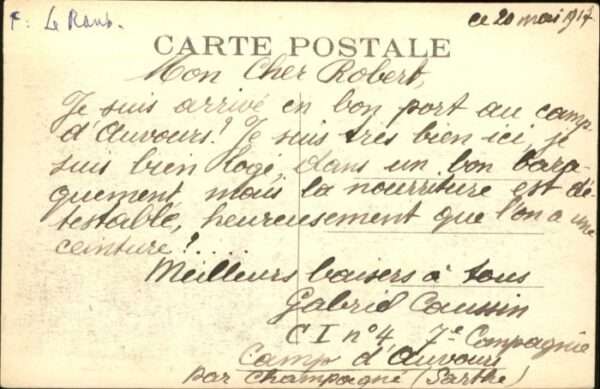 F: Le Rans.
ce 20 mai 1917
CARTE POSTALE
Mon Cher Robert,
Je suis arrivé en bon port au camp
d'Auvours! Je suis très bien ici, je
suis bien logé, dans un bon bara-
quement mais la nourriture est dé-
testable, heureusement que l'on a une
ceinture!....
Meilleurs baisers à tous
Gabriel Caussin
C I n°4 7e Compagnie
Camp d'Auvours
par Champagné (Sarthe)